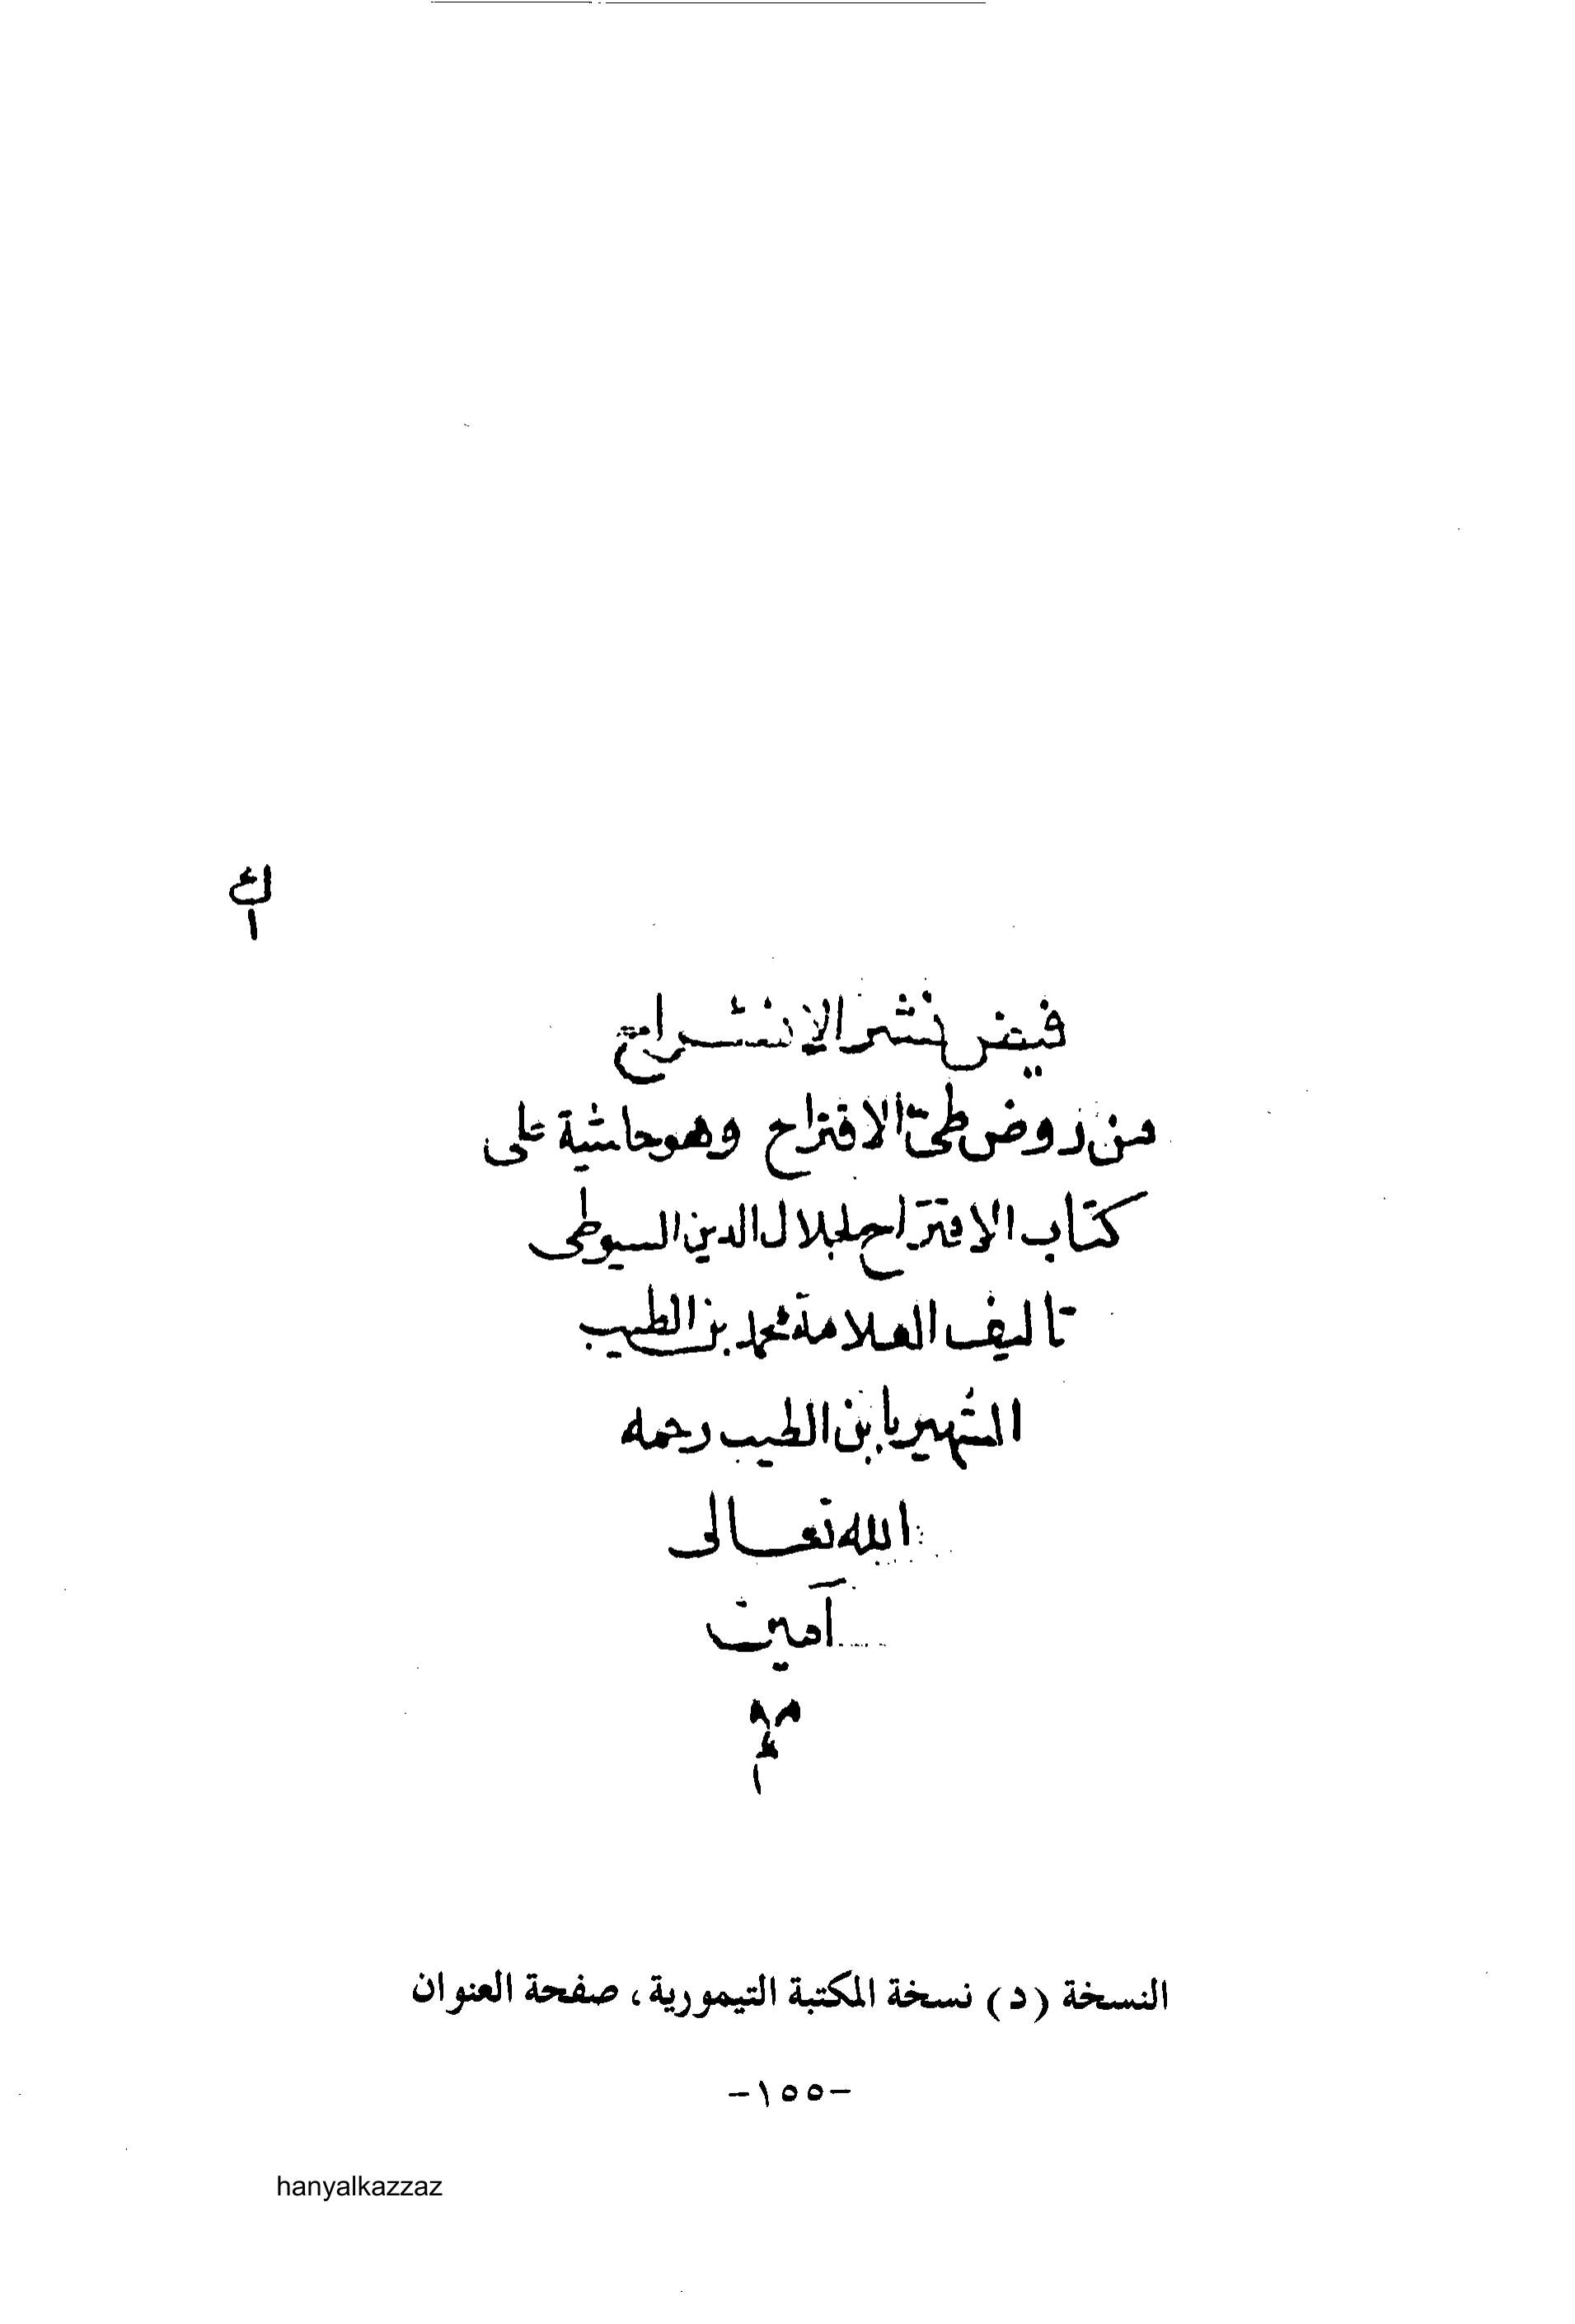 فيض نشر الانشراح
من روض طي الاقتراح وهو حاشية على
كتاب الاقتراح لجلال الدين السيوطى
تاليف العلامة محمد بن الطيب
الشهير بابن الطيب رحمه
الله تعالى
آمين
النسخة (د) نسخة المكتبة التيمورية، صفحة العنوان
-١٥٥-
hanyalkazzaz